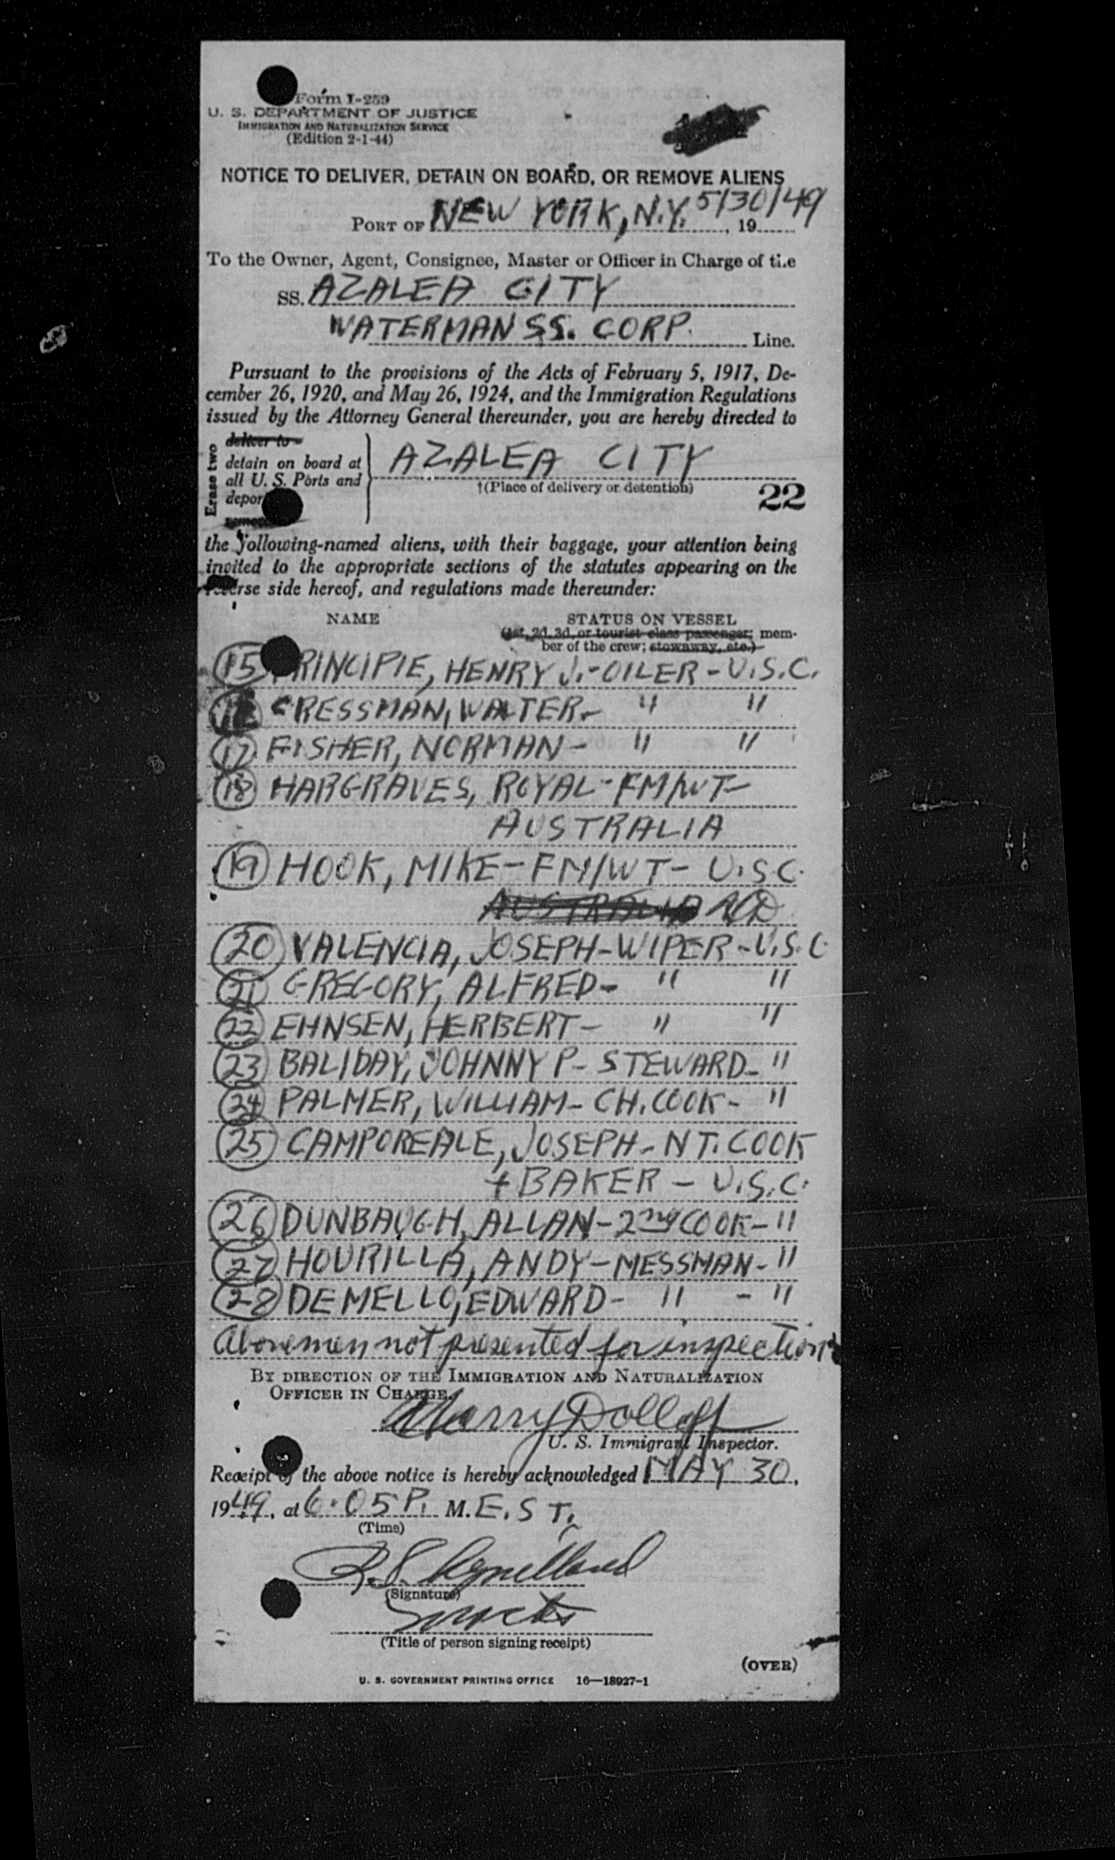 Form I-259
U. S. DEPARTMENT OF JUSTICE
IMMIGRATION AND NATURALIZATION SERVICE
(Edition 2-1-44)
NOTICE TO DELIVER, DETAIN ON BOARD, OR REMOVE ALIENS
PORT OF NEW YORK, N.Y. 5/30/49, 19
To the Owner, Agent, Consignee, Master or Officer in Charge of the
SS. AZALEA CITY
WATERMAN SS. CORP. Line.
Pursuant to the provisions of the Acts of February 5, 1917, De-
cember 26, 1920, and May 26, 1924, and the Immigration Regulations
issued by the Attorney General thereunder, you are hereby directed to
Erase two
deliver to
detain on board at
all U. S. Ports and
depor
AZALEA CITY
†(Place of delivery or detention)
22
the following-named aliens, with their baggage, your attention being
invited to the appropriate sections of the statutes appearing on the
reverse side hereof, and regulations made thereunder:
NAME STATUS ON VESSEL
(1st, 2d, 3d, or tourist class passenger; mem-
ber of the crew; stowaway, etc.)
15 PRINCIPIE, HENRY J. - OILER - U.S.C.
CRESSMAN, WALTER - " "
17 FISHER, NORMAN - " "
18 HARGRAVES, ROYAL - FM/WT -
AUSTRALIA
19 HOOK, MIKE - FM/WT - U.S.C.
AUSTRALIA
20 VALENCIA, JOSEPH - WIPER - U.S.C
21 GREGORY, ALFRED - " "
22 EHNSEN, HERBERT - " "
23 BALIDAY, JOHNNY P - STEWARD - "
24 PALMER, WILLIAM - CH. COOK - "
25 CAMPOREALE, JOSEPH - NT. COOK
+ BAKER - U.S.C.
26 DUNBAUGH, ALLAN - 2nd COOK - "
27 HOURILLA, ANDY - MESSMAN - "
28 DEMELLO, EDWARD - " - "
Above men not presented for inspection
BY DIRECTION OF THE IMMIGRATION AND NATURALIZATION
OFFICER IN CHARGE.
Harry Dolloff
U. S. Immigrant Inspector.
Receipt of the above notice is hereby acknowledged MAY 30,
1949, at 6:05 P. M. E.S T.
(Time)
(Signature)
(Title of person signing receipt)
(OVER)
U. S. GOVERNMENT PRINTING OFFICE 16—18927-1